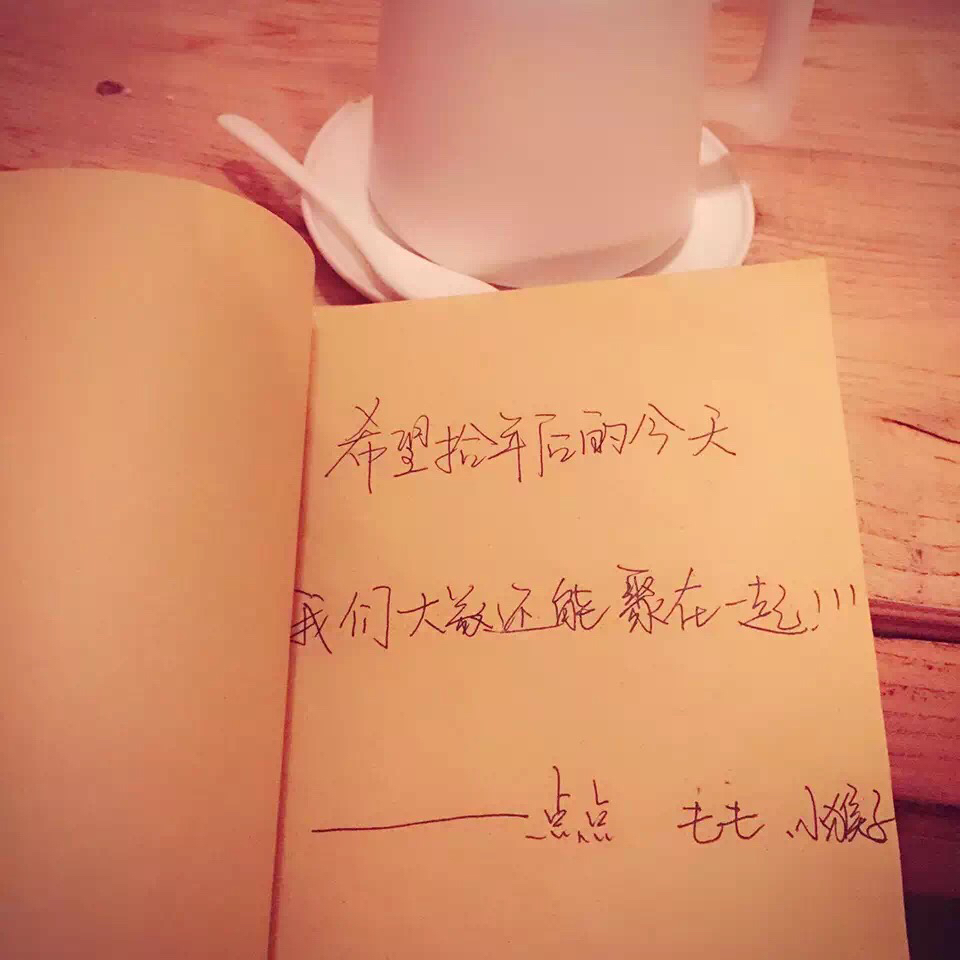 希望拾年后的今天
我们大家还能聚在一起!!!
——点点 毛毛 小猴子